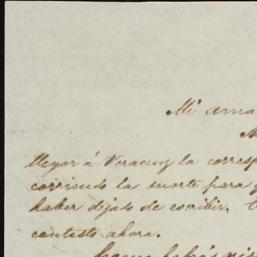 Mi ama
llegar á Veracruz la corresp
corriendo la suerte para
haber dejado de escribir.
contesto ahora.